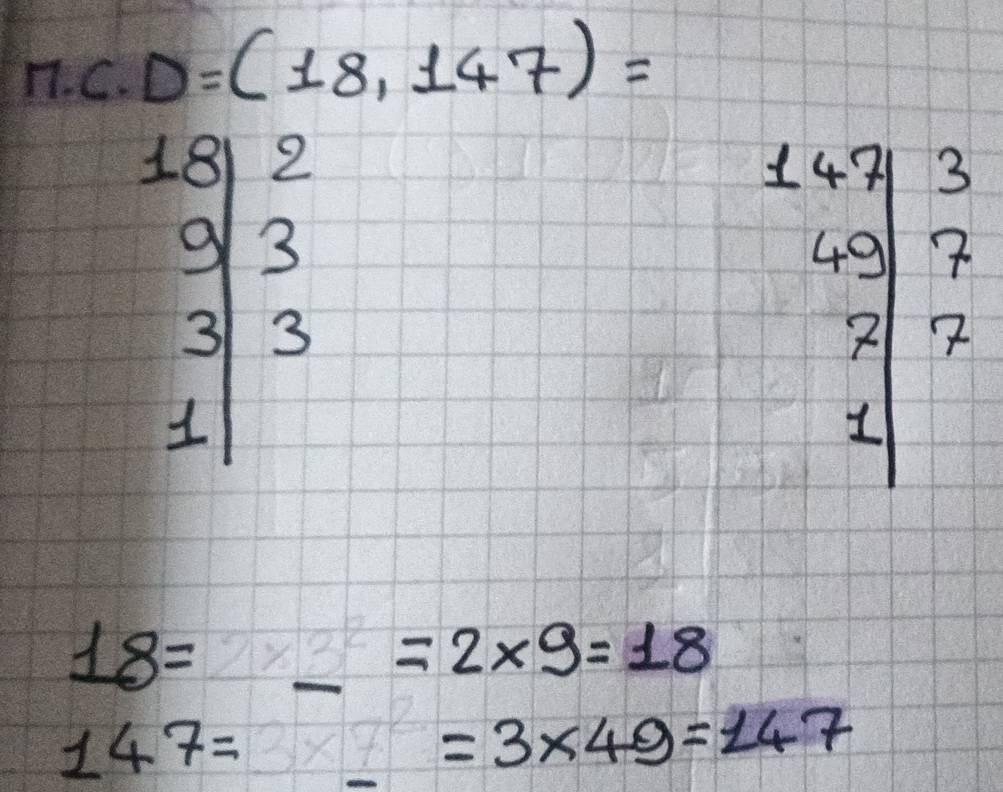 M.C.D=(18,147)=
18| 2 147| 3
9| 3 49| 7
3| 3 7| 7
1| 1|
18= 2×3² =2×9=18
147= 3×7² =3×49=147